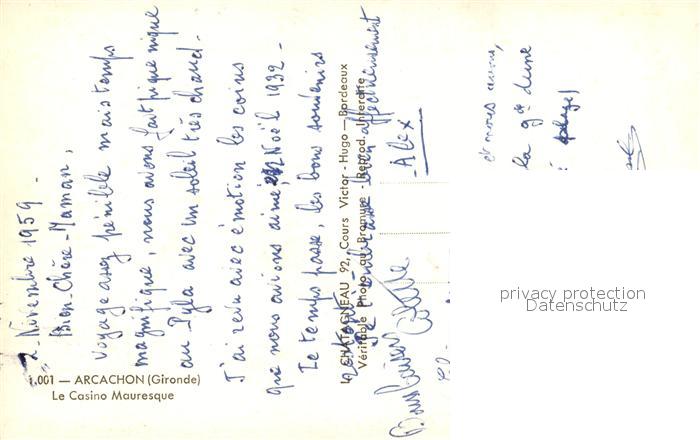 2 Novembre 1959 -
Bien-Chère-Maman,
Voyage assez pénible mais temps
magnifique, nous avons fait pique nique
au Pyla avec un soleil très chaud.
J'ai revu avec émotion les coins
que nous avions aimé, Noël 1932 -
Le temps passe, les bons souvenirs
affectueusement
- Alex
et nous avons,
la gde dune
Bons baisers
Colette
1.001 — ARCACHON (Gironde)
Le Casino Mauresque
CHATAGNEAU 92, Cours Victor - Hugo — Bordeaux
Véritable Photo au Bromure - Reprod. Interdite
privacy protection
Datenschutz